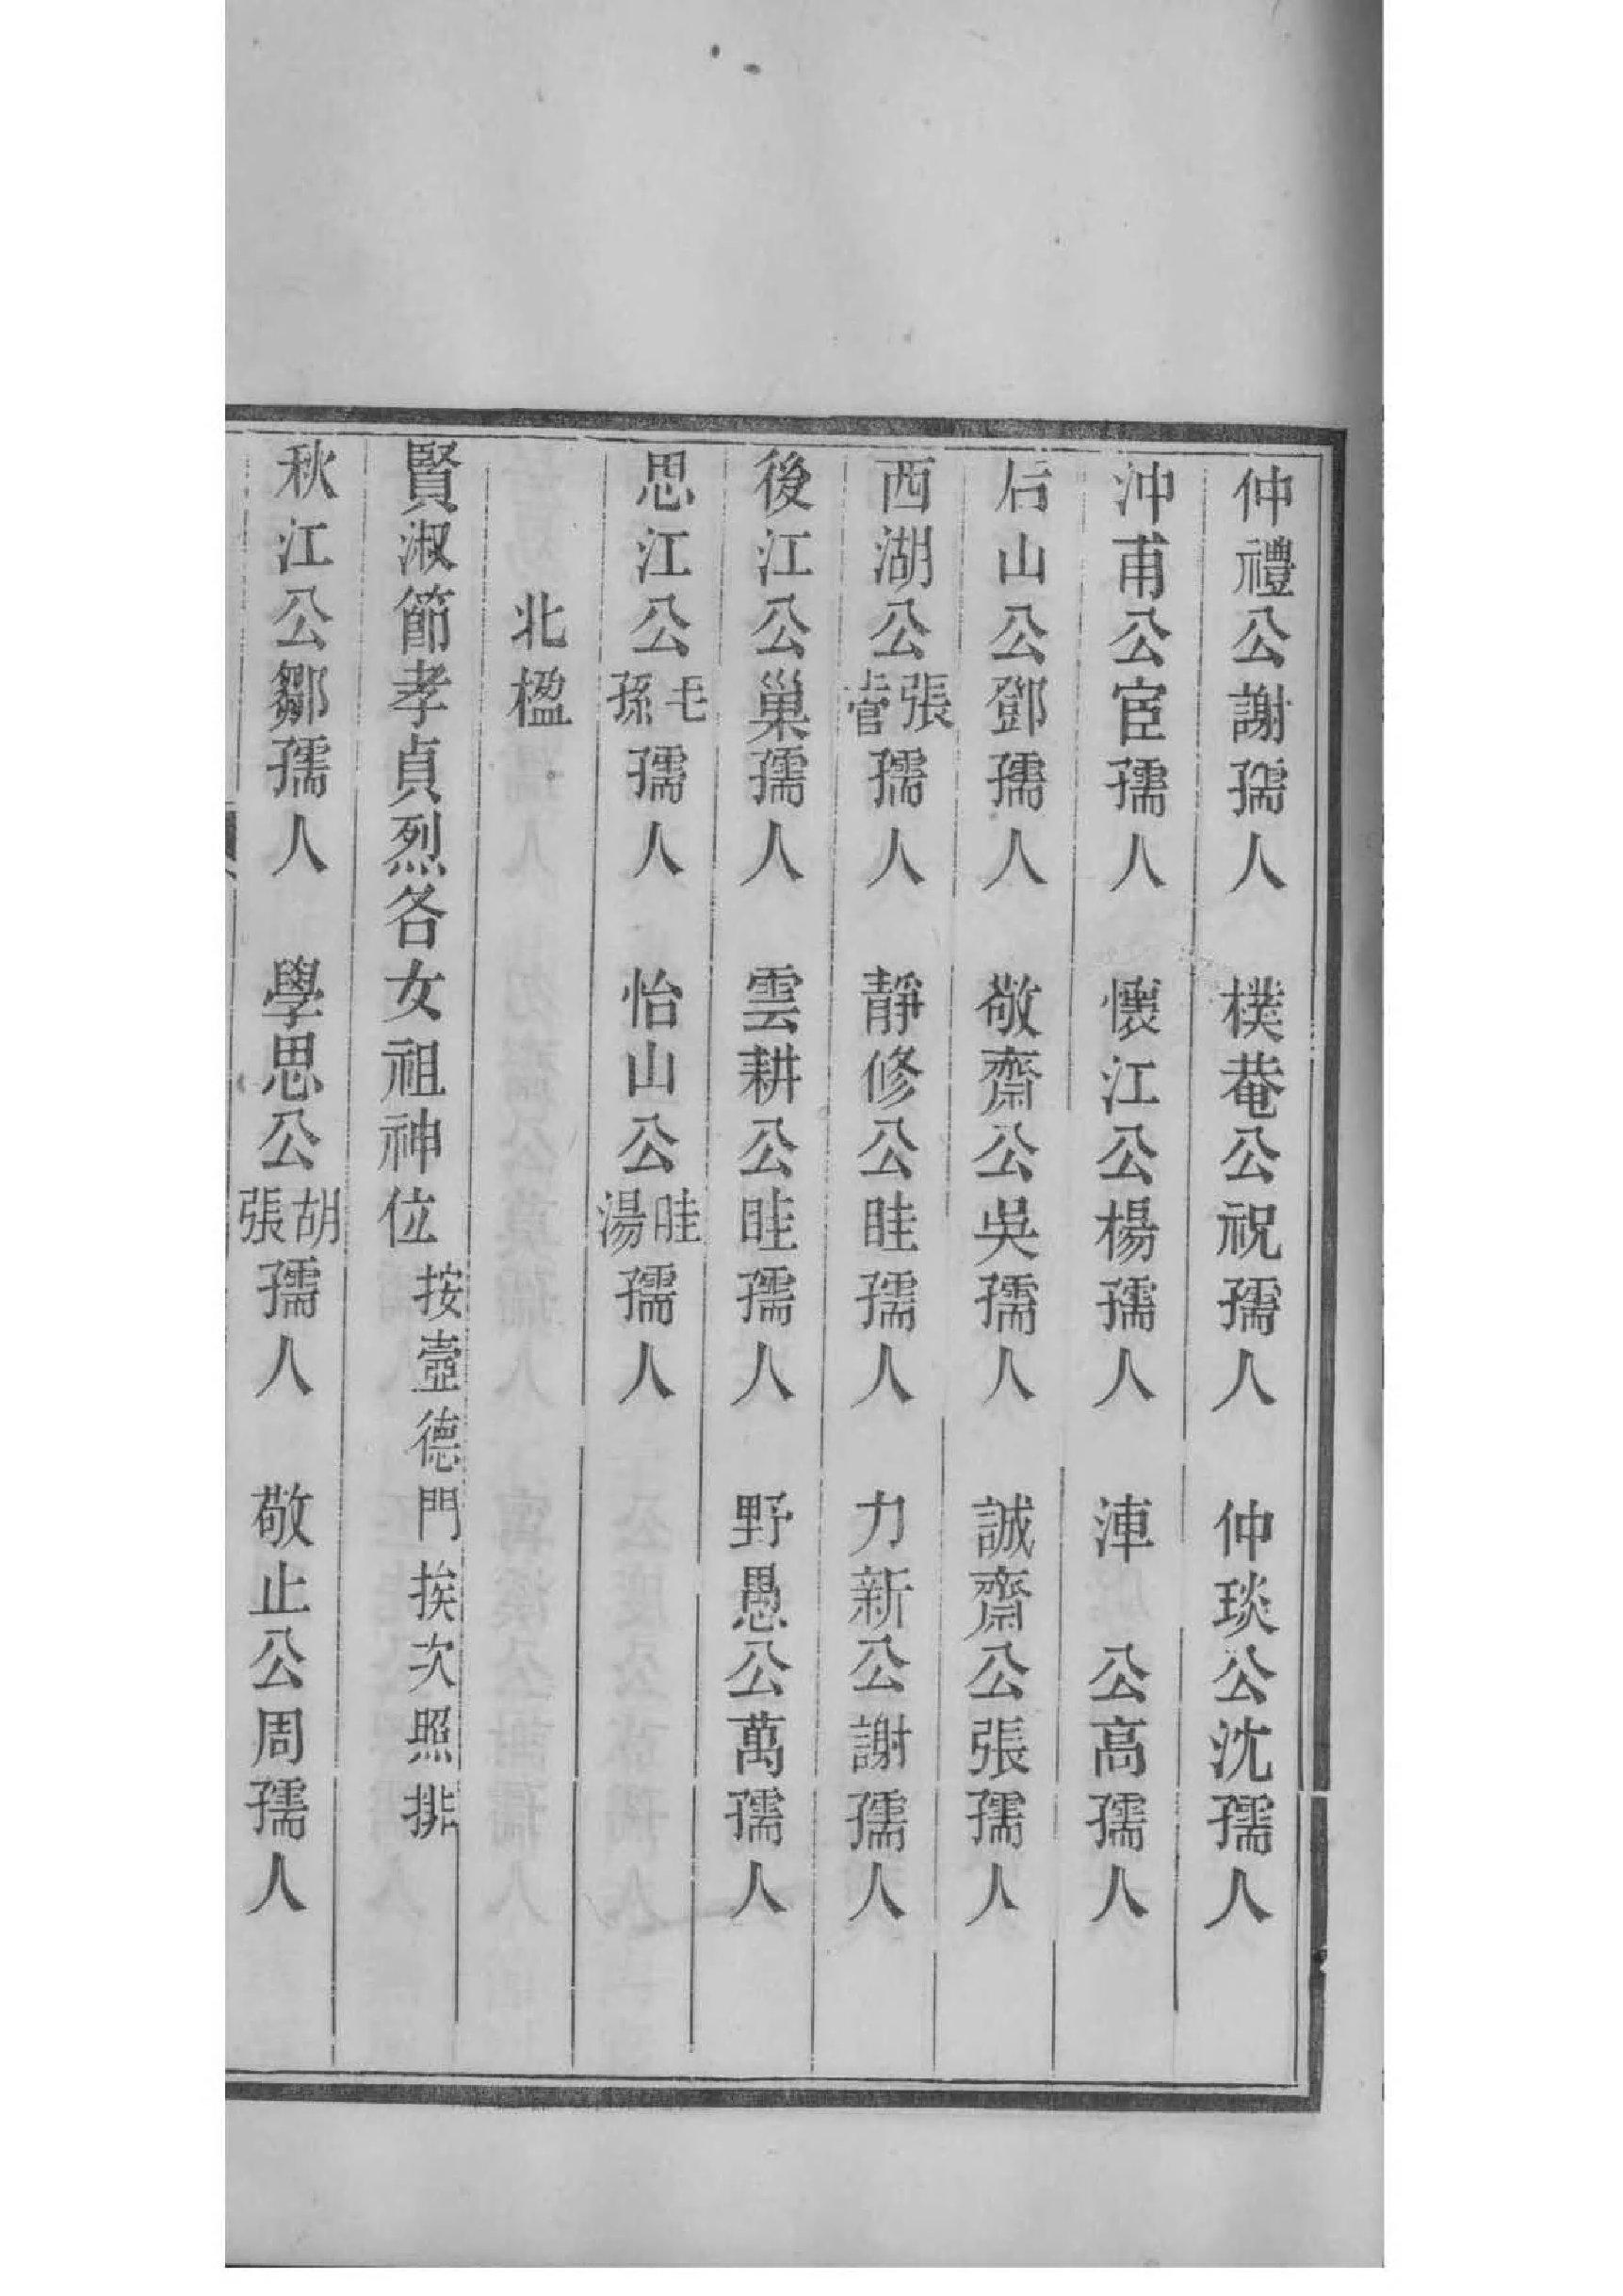 仲禮公謝孺人　樸菴公祝孺人　仲琰公沈孺人
沖甫公宦孺人　懷江公楊孺人　漣　公高孺人
后山公鄧孺人　敬齋公吳孺人　誠齋公張孺人
西湖公張管孺人　靜修公眭孺人　力新公謝孺人
後江公巢孺人　雲耕公眭孺人　野愚公萬孺人
思江公毛孫孺人　怡山公眭湯孺人
北楹
賢淑節孝貞烈各女祖神位按壼德門挨次照排
秋江公鄒孺人　學思公胡張孺人　敬止公周孺人